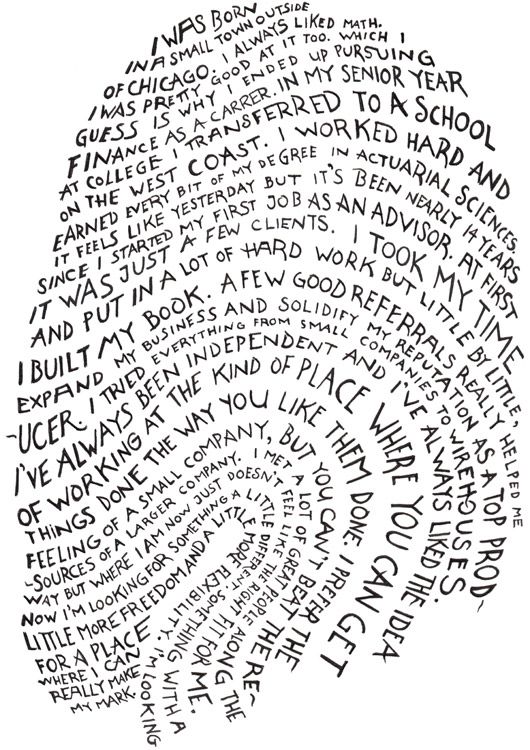 I WAS BORN
IN A SMALL TOWN OUTSIDE
OF CHICAGO. I ALWAYS LIKED MATH.
I WAS PRETTY GOOD AT IT TOO. WHICH I
GUESS IS WHY I ENDED UP PURSUING
FINANCE AS A CARRER. IN MY SENIOR YEAR
AT COLLEGE I TRANSFERRED TO A SCHOOL
ON THE WEST COAST. I WORKED HARD AND
EARNED EVERY BIT OF MY DEGREE IN ACTUARIAL SCIENCES,
IT FEELS LIKE YESTERDAY BUT IT'S BEEN NEARLY 14 YEARS
SINCE I STARTED MY FIRST JOB AS AN ADVISOR. AT FIRST
IT WAS JUST A FEW CLIENTS. I TOOK MY TIME
AND PUT IN A LOT OF HARD WORK BUT LITTLE BY LITTLE,
I BUILT MY BOOK. A FEW GOOD REFERRALS REALLY HELPED ME
EXPAND MY BUSINESS AND SOLIDIFY MY REPUTATION AS A TOP PROD~
~UCER. I TRIED EVERYTHING FROM SMALL COMPANIES TO WIREHOUSES.
I'VE ALWAYS BEEN INDEPENDENT AND I'VE ALWAYS LIKED THE IDEA
OF WORKING AT THE KIND OF PLACE WHERE YOU CAN GET
THINGS DONE THE WAY YOU LIKE THEM DONE. I PREFER THE
FEELING OF A SMALL COMPANY, BUT YOU CAN'T BEAT THE RE~
~SOURCES OF A LARGER COMPANY. I MET A LOT OF GREAT PEOPLE ALONG THE
WAY BUT WHERE I AM NOW JUST DOESN'T FEEL LIKE THE RIGHT FIT FOR ME.
NOW I'M LOOKING FOR SOMETHING A LITTLE DIFFERENT. SOMETHING WITH A
LITTLE MORE FREEDOM AND A LITTLE MORE FLEXIBILITY. I'M LOOKING
FOR A PLACE
WHERE I CAN
REALLY MAKE
MY MARK.